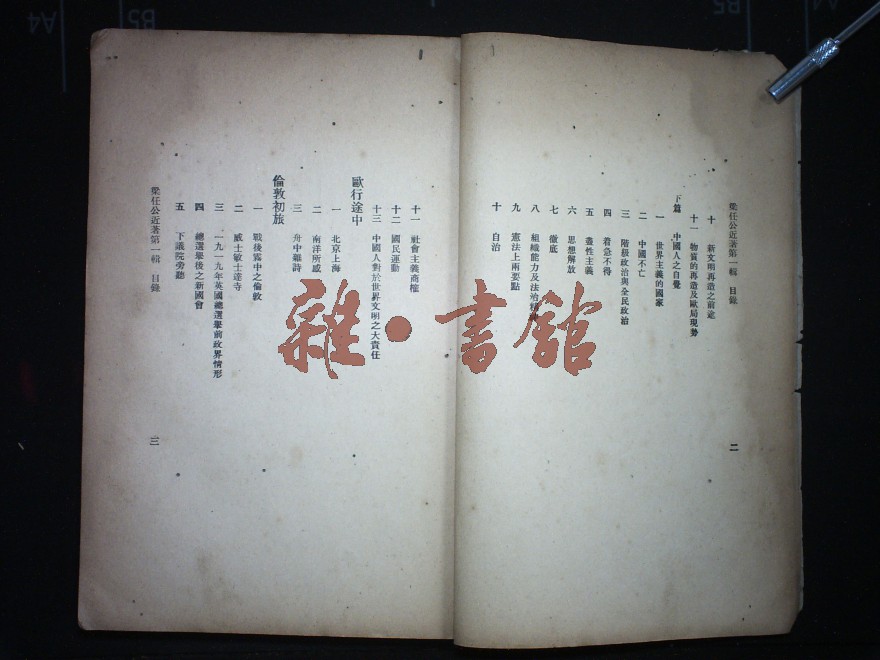 梁任公近著第一輯 目錄
二
十 新文明再造之前途
十一 物質的再造及歐局現勢
下篇 中國人之自覺
一 世界主義的國家
二 中國不亡
三 階級政治與全民政治
四 着急不得
五 盡性主義
六 思想解放
七 徹底
八 組織能力及法治精神
九 憲法上兩要點
十 自治
十一 社會主義商榷
十二 國民運動
十三 中國人對於世界文明之大責任
歐行途中
一 北京上海
二 南洋所感
三 舟中雜詩
倫敦初旅
一 戰後霧中之倫敦
二 威士敏士達寺
三 一九一九年英國總選舉前政界情形
四 總選舉後之新國會
五 下議院旁聽
梁任公近著第一輯 目錄
三
雜·書館
A4
B5
B5
A4